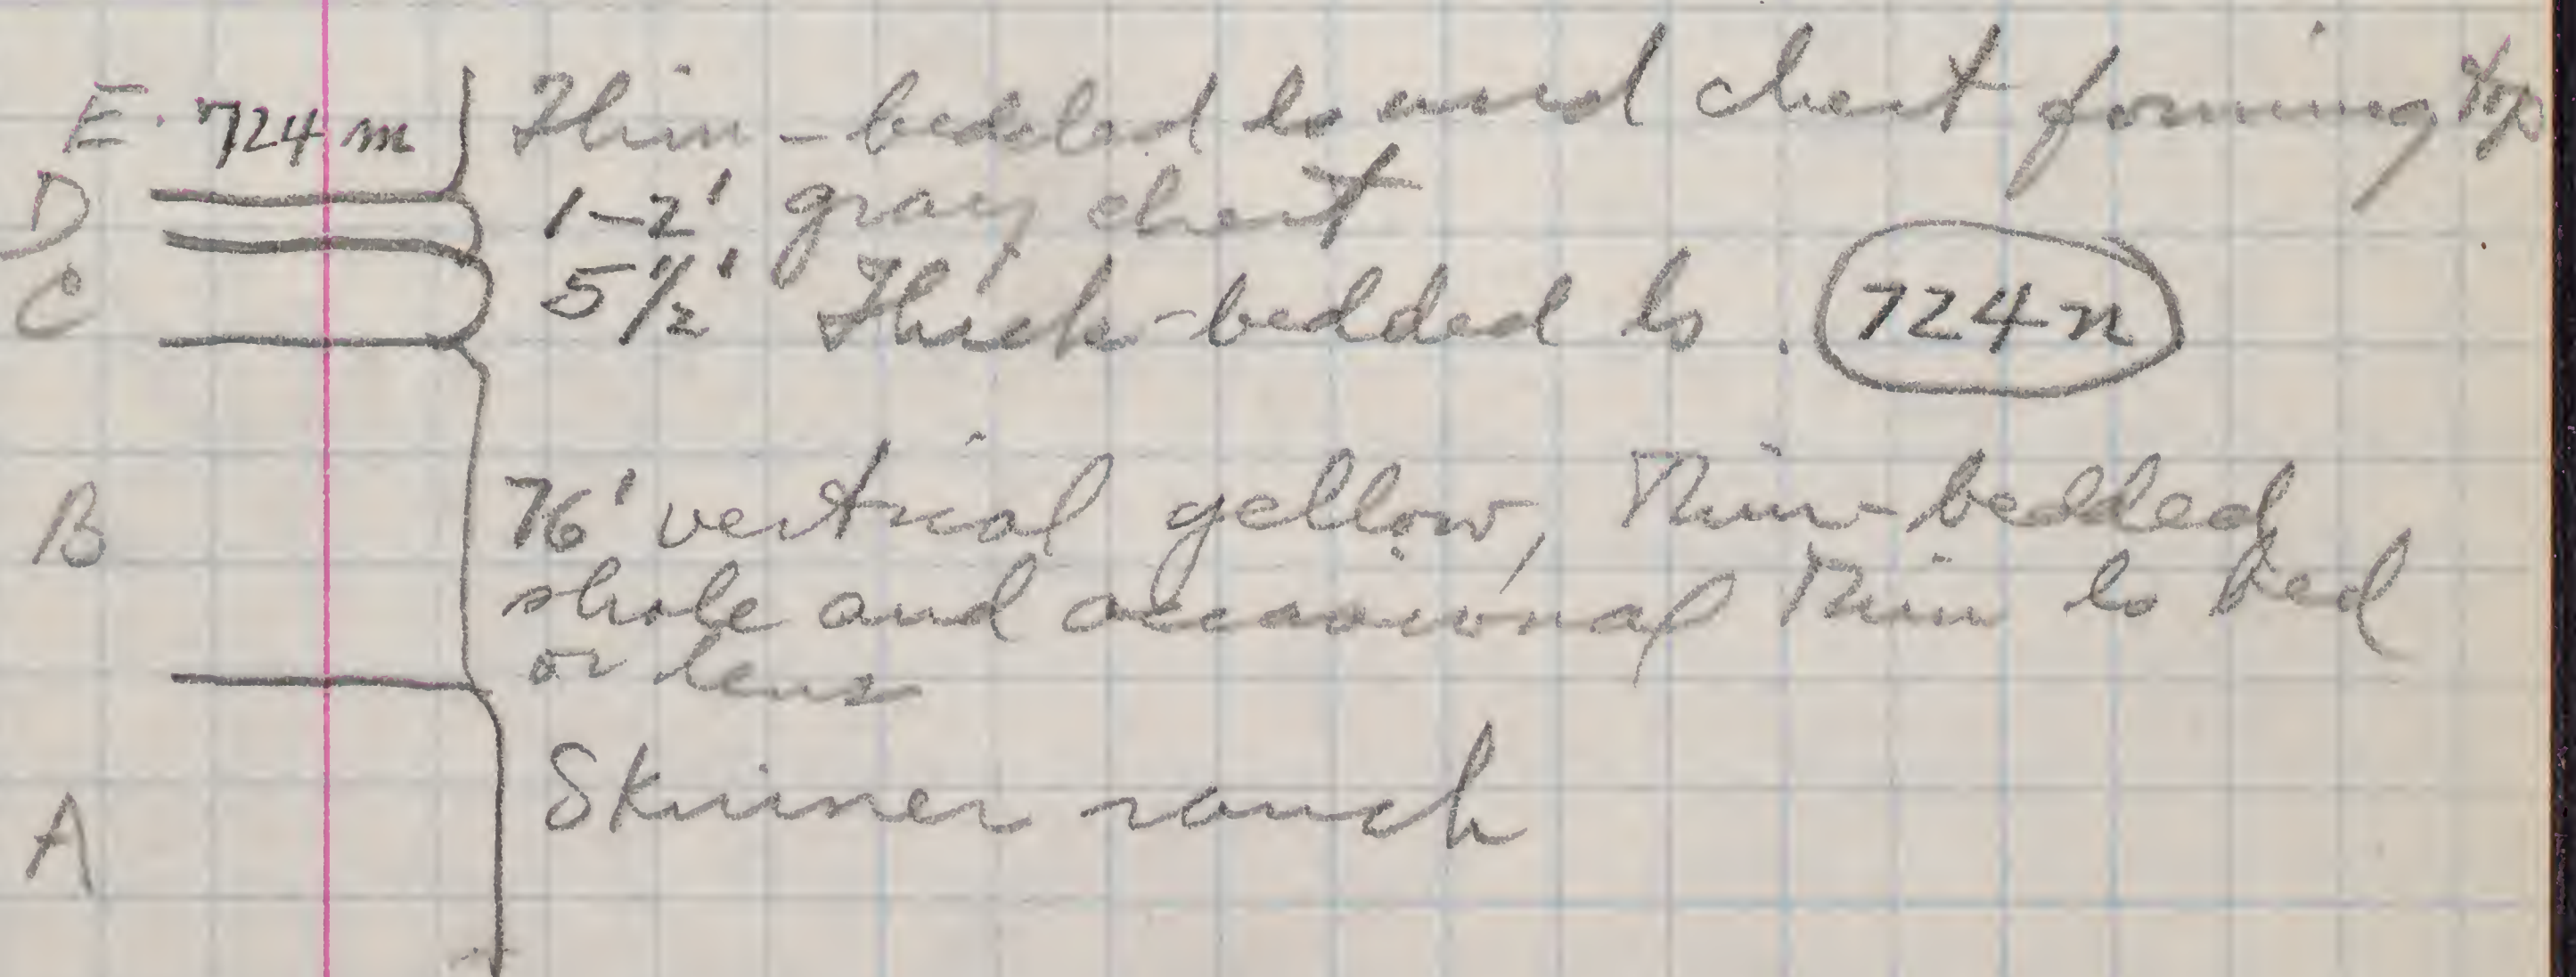 E. 724m Thin-bedded ls and chert forming top
D 1-2' gray chert
C 5 1/2' Thick-bedded ls. 724n
B 76' vertical yellow, Thin-bedded
shale and occasional thin ls bed
or lens
A Skinner ranch